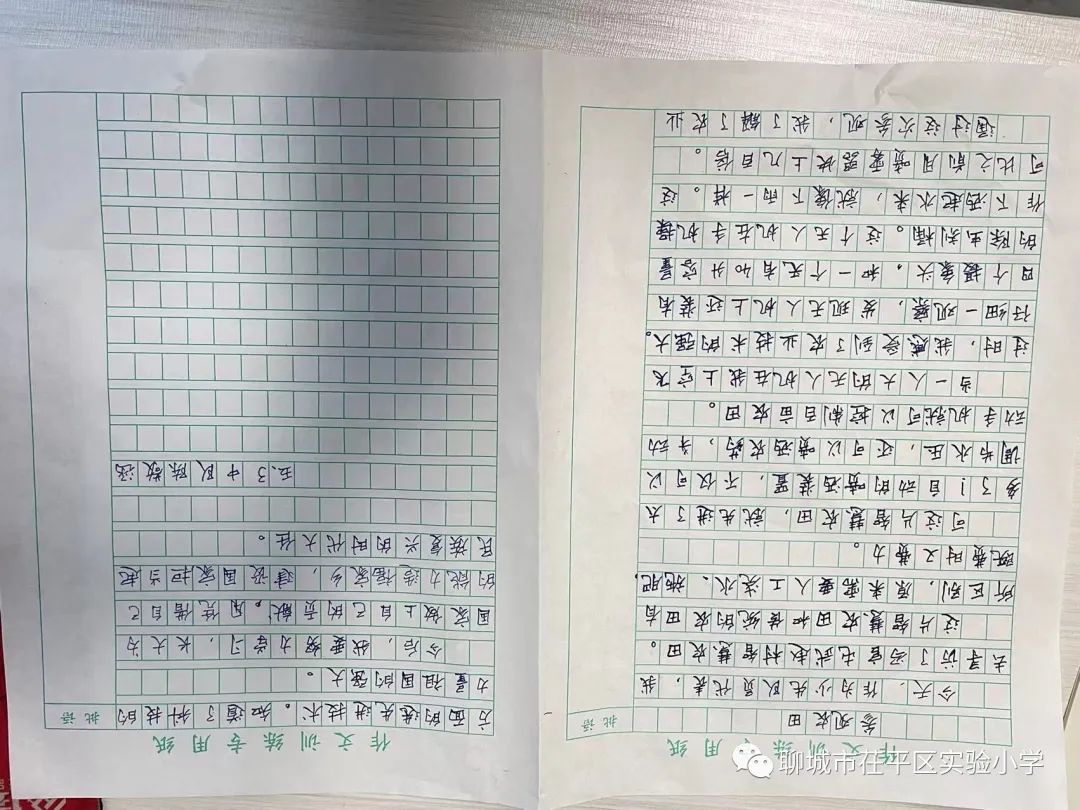 作文训练专用纸
批语
参观农田
今天,作为少先队员代表,我
去寻访了冯官屯武赵村智慧农田。
这片智慧农田和传统的农田有
所区别,原来需要人工浇水、施肥,
既费时又费力。
可这片智慧农田,就先进了太
多了!自动的喷洒装置,不仅可以
调节水压,还可以喷洒农药,手动
动手机就可以控制百亩农田。
当一人大的无人机在我上空飞
过时,我感受到了农业技术的强大。
仔细一观察,发现无人机上还装有
四个摄象头,和一个有40升容量
的除虫剂桶。这个无人机在手机操
作下洒起水来,就像下雨一样。这
可比之前用喷雾器快上几百倍。
通过这次参观,我了解了农业
作文训练专用纸
批语
方面的先进技术。知道了科技的
力量祖国的强大。
今后,我要努力学习,长大为
国家做上自己的贡献。用凭借自己
的能力造福家乡,建设国家担当起
民族复兴的时代大任。
五.3 中队 陈敬
聊城市茌平区实验小学